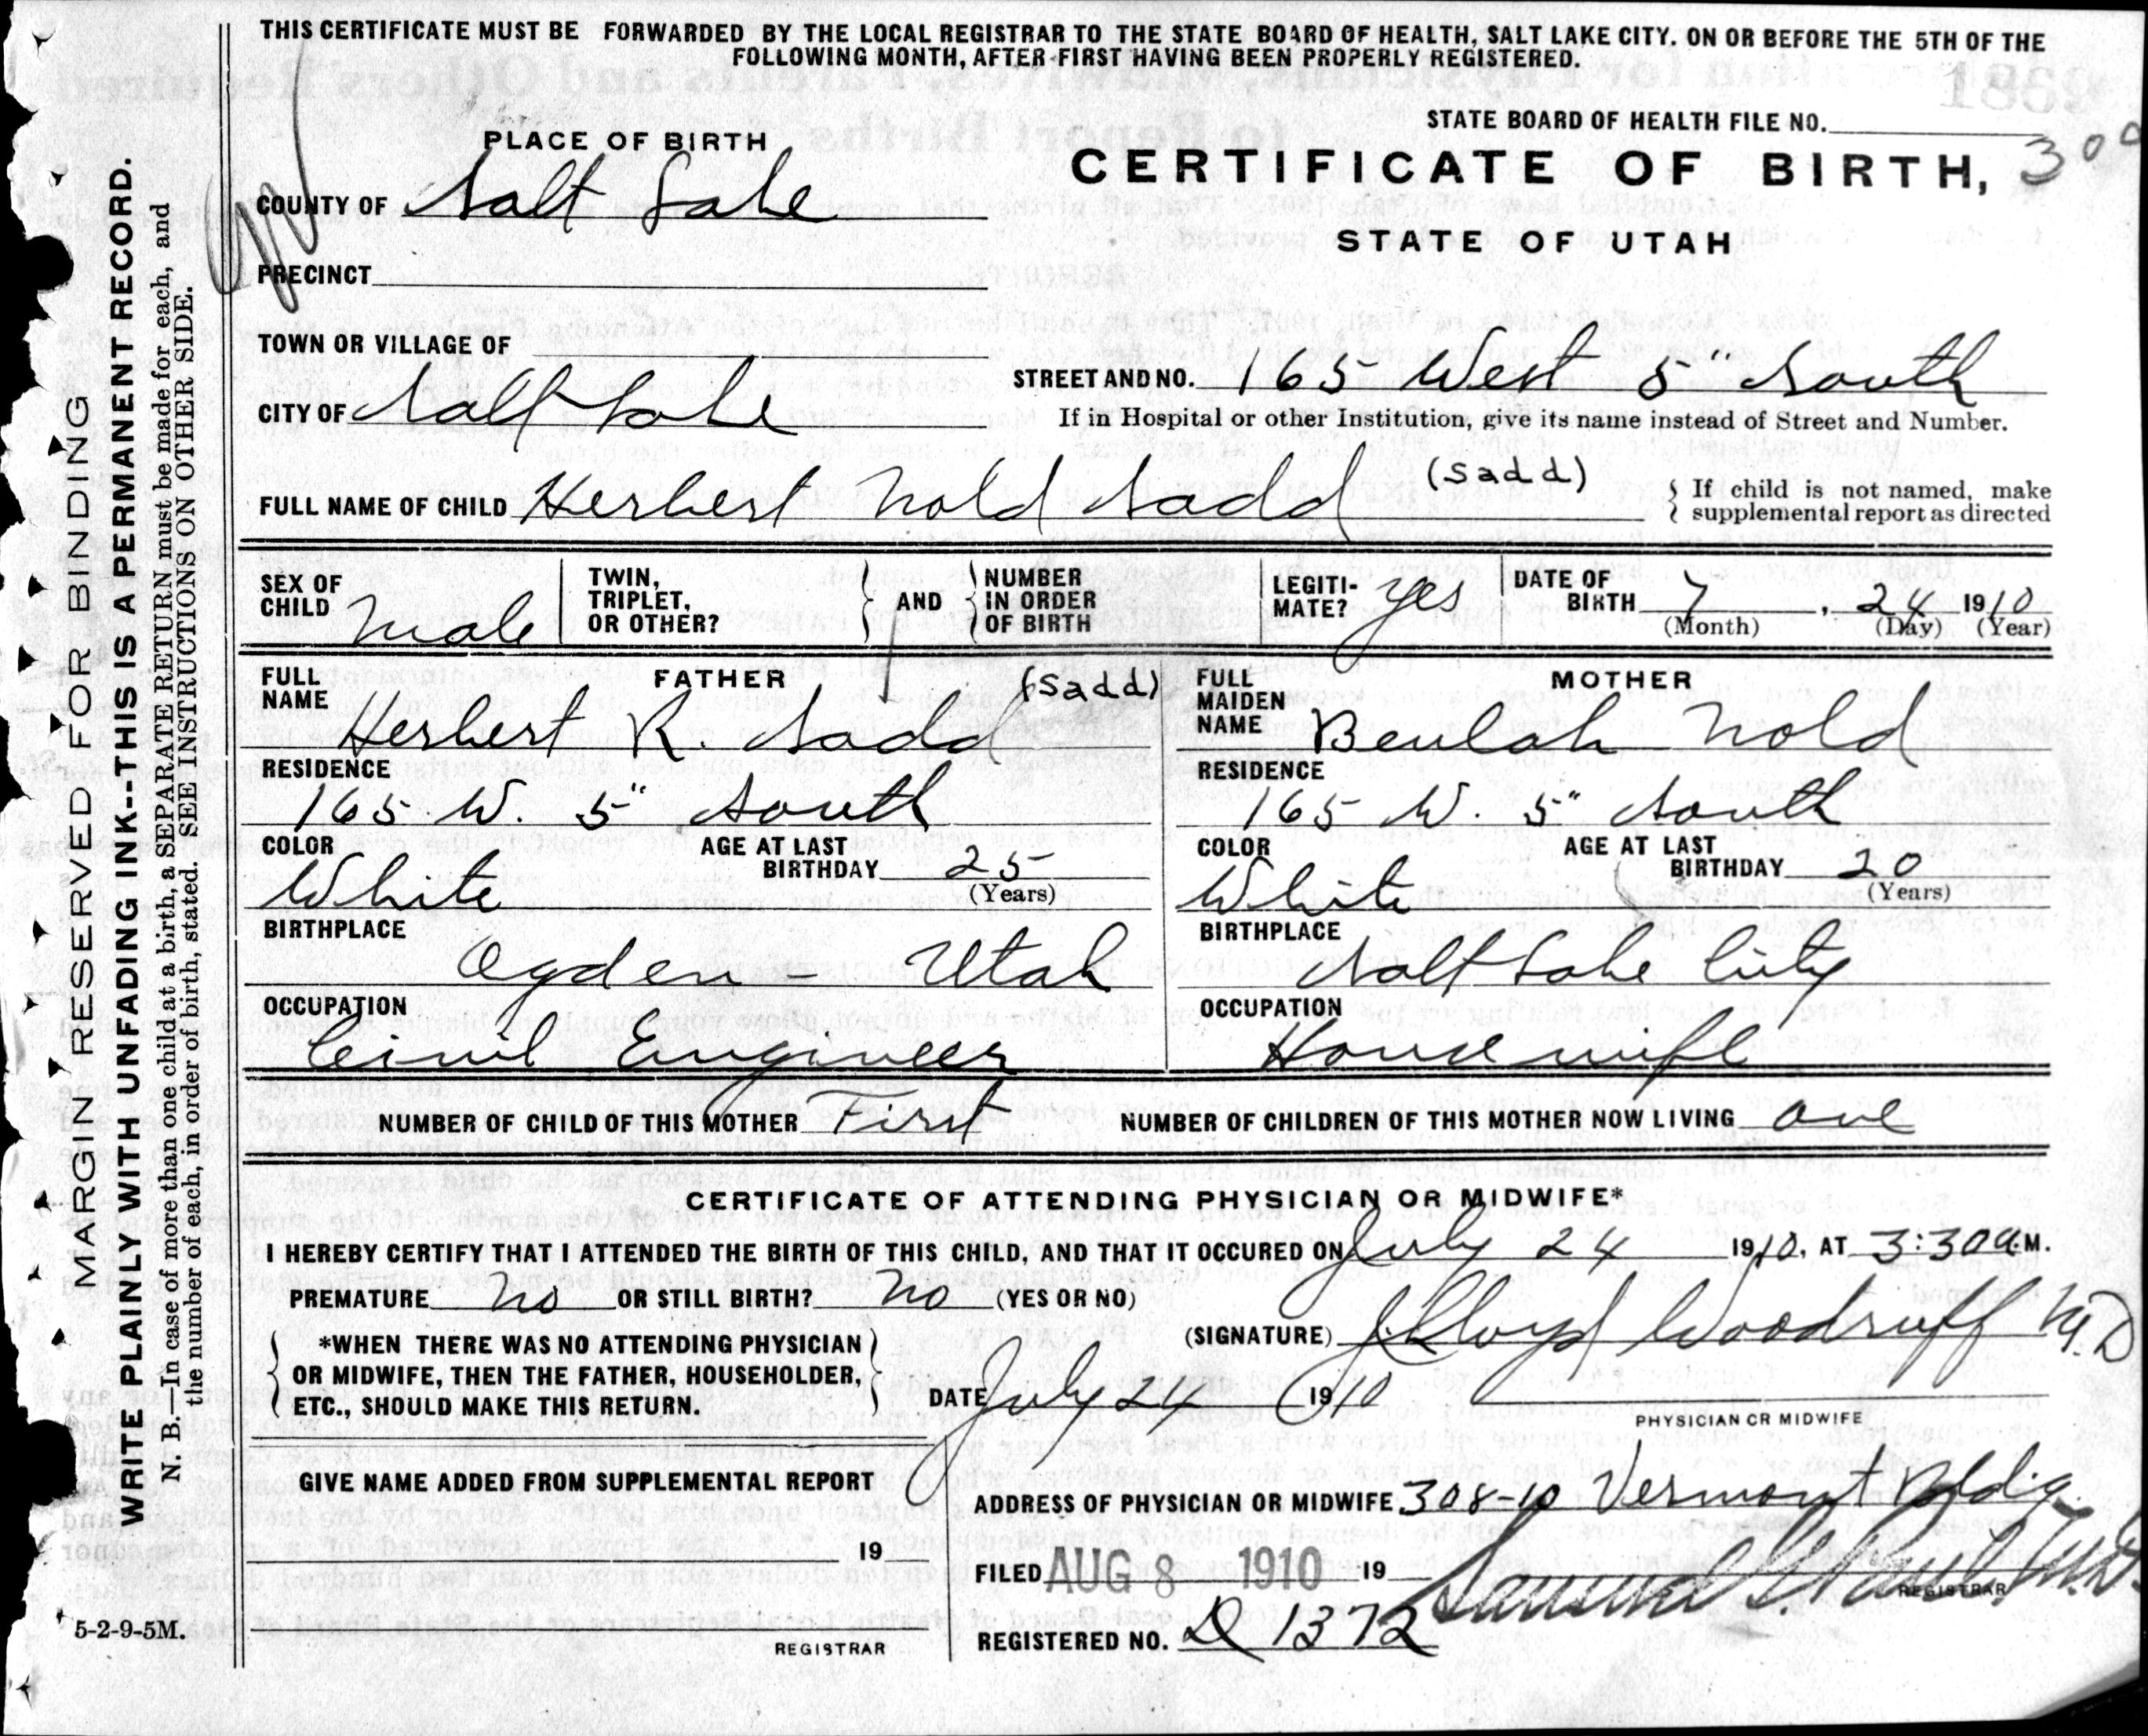 THIS CERTIFICATE MUST BE FORWARDED BY THE LOCAL REGISTRAR TO THE STATE BOARD OF HEALTH, SALT LAKE CITY. ON OR BEFORE THE 5TH OF THE
FOLLOWING MONTH, AFTER FIRST HAVING BEEN PROPERLY REGISTERED.
MARGIN RESERVED FOR BINDING
WRITE PLAINLY WITH UNFADING INK--THIS IS A PERMANENT RECORD.
N. B.—In case of more than one child at a birth, a SEPARATE RETURN must be made for each, and
the number of each, in order of birth, stated. SEE INSTRUCTIONS ON OTHER SIDE.
PLACE OF BIRTH
STATE BOARD OF HEALTH FILE NO.
CERTIFICATE OF BIRTH,
STATE OF UTAH
COUNTY OF Salt Lake
PRECINCT
TOWN OR VILLAGE OF
CITY OF Salt Lake
STREET AND NO. 165 West 5" South
If in Hospital or other Institution, give its name instead of Street and Number.
FULL NAME OF CHILD Herbert Nold Sadd (Sadd)
If child is not named, make
supplemental report as directed
SEX OF CHILD Male
TWIN, TRIPLET, OR OTHER?
AND
NUMBER IN ORDER OF BIRTH
LEGITI-MATE? yes
DATE OF BIRTH 7, 24 1910
(Month) (Day) (Year)
FATHER
FULL NAME Herbert R. Sadd (Sadd)
RESIDENCE
165 W. 5" South
COLOR White
AGE AT LAST BIRTHDAY 25
(Years)
BIRTHPLACE
Ogden - Utah
OCCUPATION
Civil Engineer
MOTHER
FULL MAIDEN NAME Beulah Nold
RESIDENCE
165 W. 5" South
COLOR White
AGE AT LAST BIRTHDAY 20
(Years)
BIRTHPLACE
Salt Lake City
OCCUPATION
Housewife
NUMBER OF CHILD OF THIS MOTHER First
NUMBER OF CHILDREN OF THIS MOTHER NOW LIVING one
CERTIFICATE OF ATTENDING PHYSICIAN OR MIDWIFE*
I HEREBY CERTIFY THAT I ATTENDED THE BIRTH OF THIS CHILD, AND THAT IT OCCURED ON July 24 1910, AT 3:30 a.M.
PREMATURE no OR STILL BIRTH? no (YES OR NO)
*WHEN THERE WAS NO ATTENDING PHYSICIAN
OR MIDWIFE, THEN THE FATHER, HOUSEHOLDER,
ETC., SHOULD MAKE THIS RETURN.
(SIGNATURE) Lloyd Woodruff M.D
DATE July 24 1910
PHYSICIAN OR MIDWIFE
GIVE NAME ADDED FROM SUPPLEMENTAL REPORT
19
REGISTRAR
ADDRESS OF PHYSICIAN OR MIDWIFE 308-10 Vermont Bldig.
FILED AUG 8 1910 19
Samuel G. Paul M.D.
REGISTRAR
REGISTERED NO. D 1372
5-2-9-5M.